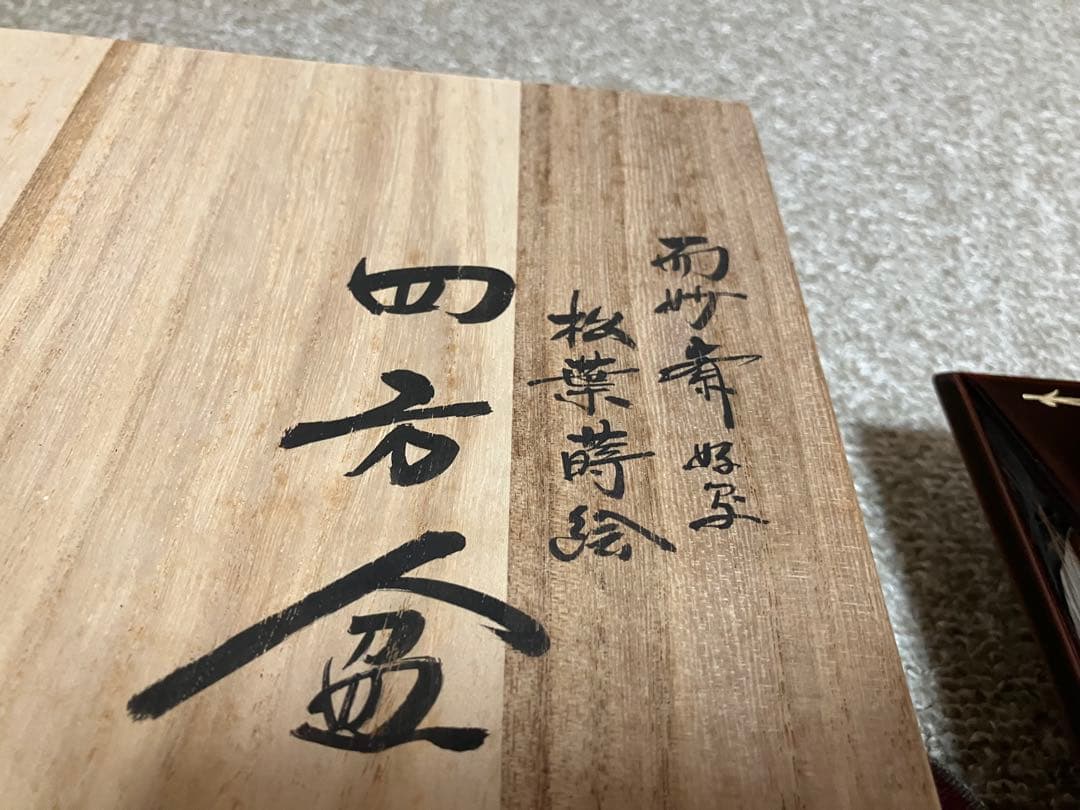 而妙斎好写
松葉蒔絵
四方盆